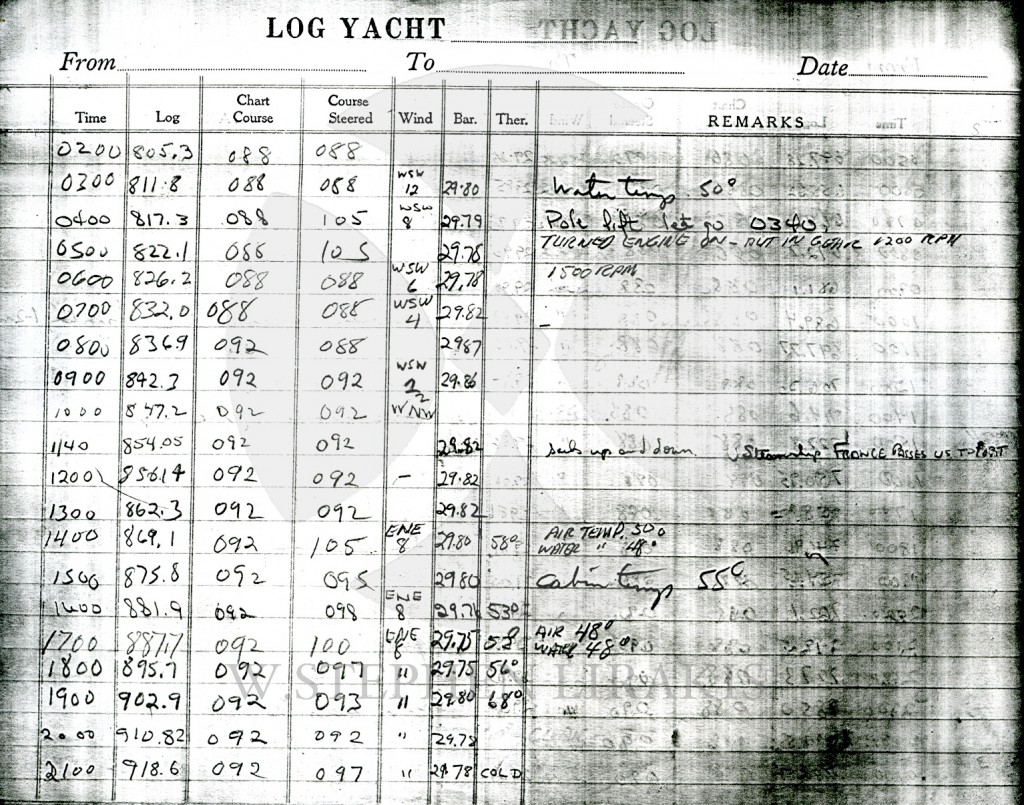 LOG YACHT
From To Date
Time Log Chart Course Course Steered Wind Bar. Ther. REMARKS
0200 805.3 088 088
0300 811.8 088 088 WSW 12 29.80 Water temp 50°
0400 817.3 088 105 WSW 8 29.79 Pole lift let go 0340
0500 822.1 088 105 29.78 TURNED ENGINE ON - PUT IN GEAR 1200 RPM
0600 826.2 088 088 WSW 6 29.78 1500 RPM
0700 832.0 088 088 WSW 4 29.82 -
0800 8369 092 088 2987
0900 842.3 092 092 WSW 2 29.86
1000 847.2 092 092 WNW
1140 854.05 092 092 29.82 Sails up and down. Steamship FRANCE PASSES US TO PORT
1200 856.14 092 092 - 29.82
1300 862.3 092 092 29.82
1400 869.1 092 105 ENE 8 29.80 58° AIR TEMP. 50° WATER " 48°
1500 875.8 092 095 29.80 Cabin temp 55°
1600 881.9 092 098 ENE 8 29.76 53°
1700 887.7 092 100 ENE 8 29.75 AIR 48° WATER 48°
1800 895.7 092 097 " 29.75 56°
1900 902.9 092 093 " 29.80 68°
2000 910.82 092 092 " 29.78
2100 918.6 092 097 " 29.78 COLD
W. STEPHEN LIRAKIS